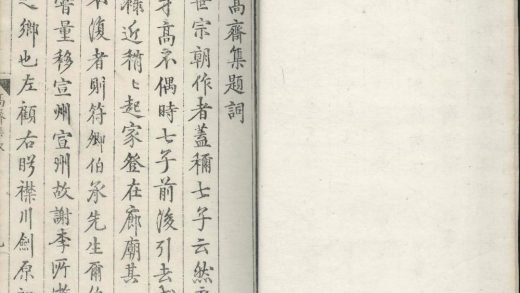 高齋集題詞
世宗朝作者蓋稱七子云然
才高不偶時七子前後引去
祿近稍〻起家登在廊廟其
不復者則符卿伯承先生爾
嘗量移宣州宣州故謝李所
之鄉也左顧右眄襟川劍原
高齋集